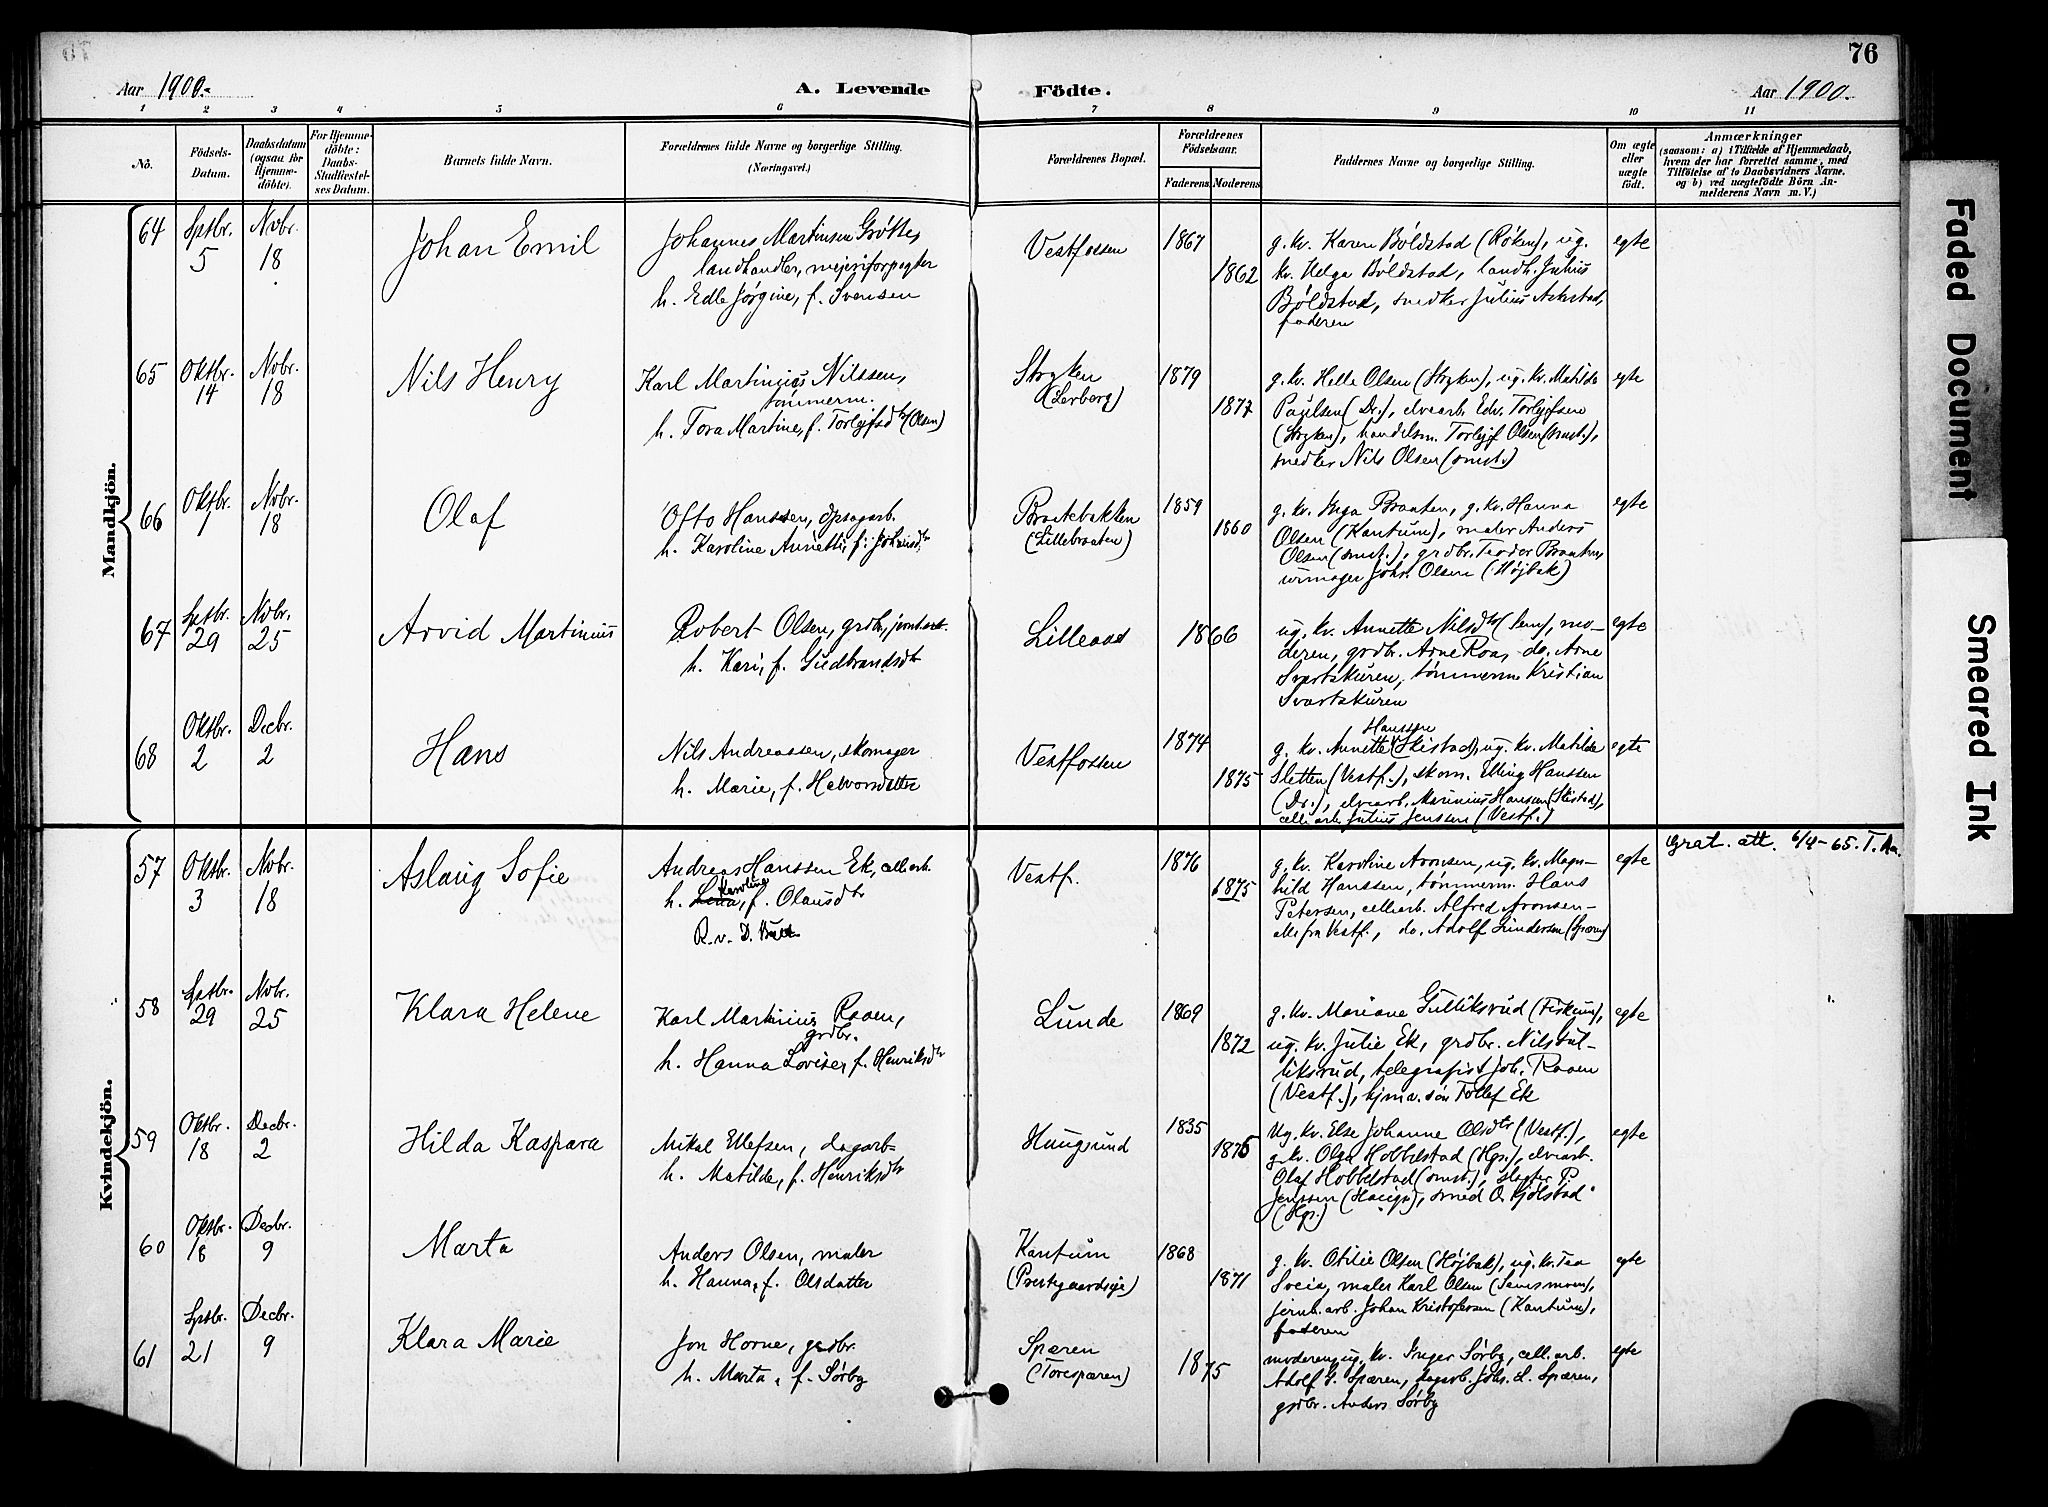 76
Aar 1900.
A. Levende
Födte.
Aar 1900.
1 2 3 4 5 6 7 8 9 10 11
No.
Födsels-
Datum.
Daabsdatum
(ogsaa for
Hjemme-
döbte).
For Hjemme-
döbte:
Daabs-
Stadfæstel-
ses Datum.
Barnets fulde Navn.
Forældrenes fulde Navne og borgerlige Stilling.
(Næringsvei.)
Forældrenes Bopæl.
Forældrenes
Födselsaar.
Faderens.
Moderens.
Faddernes Navne og borgerlige Stilling.
Om ægte
eller
uægte
födt.
Anmærkninger
(saasom: a) i Tilfælde af Hjemmedaab,
hvem der har forrettet samme, med
Tilföielse af to Daabsvidners Navne.
og b) ved uægtefödte Börn An-
melderens Navn m. V.)
Mandkjön.
64
Sptbr.
5
Novbr.
18
Johan Emil
Johannes Martinsen Grøtte,
landhandler, mejeriforpagter
h. Edle Jørgine, f. Svensen
Vestfossen
1867
1862
g. kv. Karen Bóldstad (Røken), ug.
kv. Helga Bóldstad, landh. Julius
Bóldstad, snedker Julius
faderen
egte
65
Oktbr.
14
Novbr.
18
Nils Henry
Karl Martinius Nilssen,
tømmerm.
h. Tora Martine, f. Torlejfsdtr (Olsen)
Stryken
(Lerberg)
1879
1877
g. kv. Helle Olsen (Stryken), ug. kv. Matilde
Paulsen (Dr.), elvearb. Edv. Torlejfsen
(Stryken), handelsm. Torlejf Olsen (smst.),
snedker Nils Olsen (smst.)
egte
66
Oktbr.
1
Novbr.
18
Olaf
Otto Hanssen, opsagarb.
h. Karoline Annette, f. Johansdtr
Braatebakken
(Lillebraaten)
1859
1860
g. kv. Inga Braaten, g. kv. Hanna
Olsen (Kantum), maler Anders
Olsen (smst.), grdbr. Teodor Braaten,
urmager Johs. Olsen (Højbak)
egte
67
Sptbr.
29
Novbr.
25
Arvid Martinius
Robert Olsen, grdbr,
h. Kari, f. Gudbrandsdtr
Lilleaas
1866
ug. kv. Annette Nilsdtr (Sem), mo-
deren, grdbr. Arne Roa, do. Arne
Svartskuren, tømmerm. Kristian
Svartskuren
egte
68
Oktbr.
2
Decbr.
2
Hans
Nils Andreassen, skomager
h. Marie, f. Halvorsdatter
Vestfossen
1874
1875
Hanssen
g. kv. Annette (Skistad), ug. kv. Matilde
Sletten (Vestf.), skom. Elling Hanssen
(Dr.), elvearb. Marinius Hansen (Skistad),
cellearb. Julius Jenssen (Vestf.)
egte
Kvindekjön.
57
Oktbr.
3
Novbr.
18
Aslaug Sofie
Andreas Hanssen Ek, cell.arb.
Karoline
h. Lena, f. Olausdtr
R. v. D.
Vestf.
1876
1875
g. kv. Karoline Aronsen, ug. kv. Magn-
hild Hanssen, tømmerm. Hans
Petersen, cellearb. Alfred Aronsen -
alle fra Vestf., do. Adolf Gundersen (Spæren)
egte
Grat. att. 6/4-65. T. Aa.
58
Sptbr.
29
Novbr.
25
Klara Helene
Karl Martinius Raaen,
grdbr.
h. Hanna Lovise, f. Henriksdtr
Lunde
1869
1872
g. kv. Mariane Gulliksrud (Fiskum),
ug. kv. Julie Ek, grdbr. Nils Gul-
liksrud, telegrafist Joh. Raaen
(Vestf.), hjmv. søn Tollef Ek
egte
59
Oktbr.
18
Decbr.
2
Hilda Kaspara
Mikal Ellefsen, dagarb.
h. Matilde, f. Henriksdtr
Haugsund
1835
1875
Ug. kv. Else Johanne Olsdtr (Vestf.),
g. kv. Olga Hobbelstad (Hgs.), elvearb.
Olaf Hobbelstad (smst.), slagter P.
Jenssen (Haugs.), smed O. Kjølstad
(Hgs.)
egte
60
Oktbr.
18
Decbr.
9
Marta
Anders Olsen, maler
h. Hanna, f. Olsdatter
Kantum
(Prestgaardseje)
1868
1871
g. kv. Otilie Olsen (Højbak), ug. kv. Tea
Sveia, maler Karl Olsen (Semsmoen),
jernb. arb. Johan Kristofersen (Kantum),
faderen
egte
61
Sptbr.
21
Decbr.
9
Klara Marie
Jon Horne, grdbr.
h. Marta, f. Sørby
Spæren
(Torespæren)
1875
moderen, ug. kv. Inger Sørby, cell. arb.
Adolf G. Spæren, dagarb. Johs. L. Spæren,
grdbr. Anders Sørby
egte
Faded Document
Smeared Ink